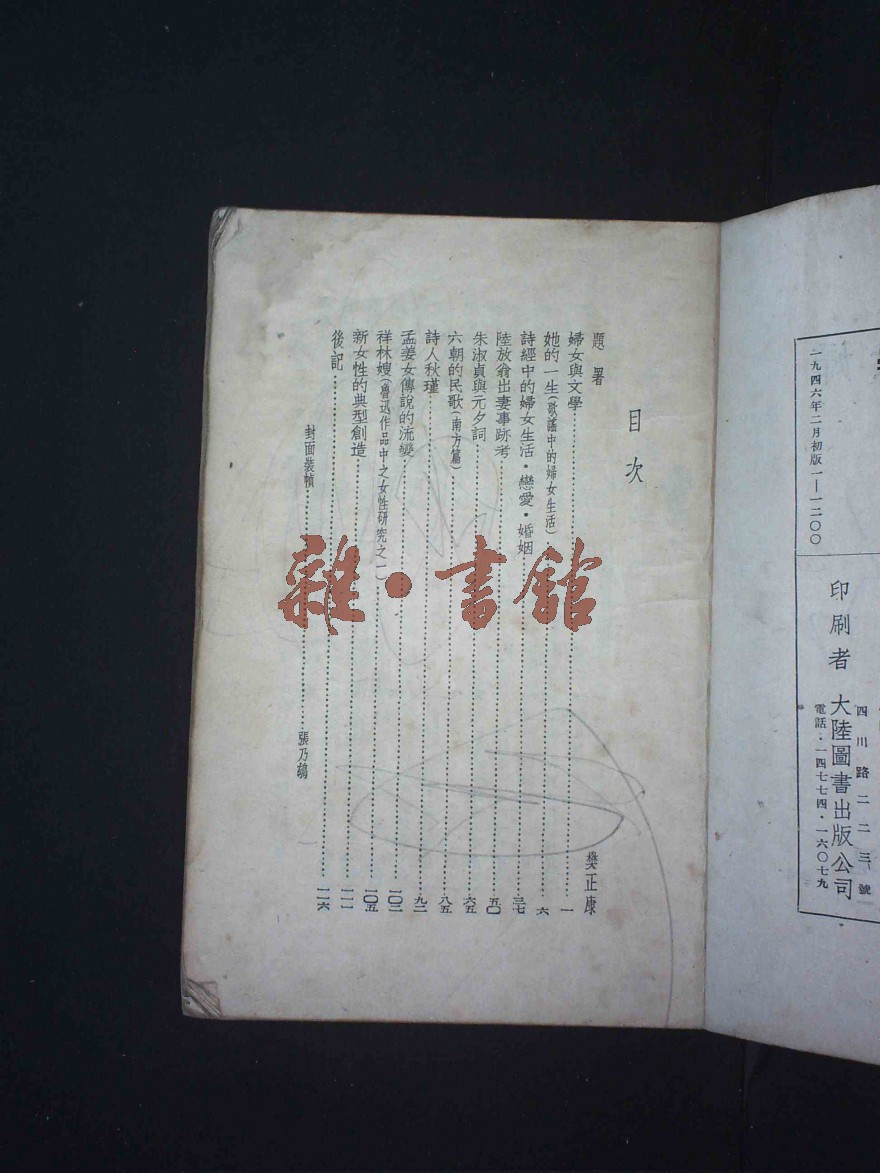 一九四六年二月初版一—一二〇〇
印刷者 大陸圖書出版公司
四川路二二三號
電話・一四七七四・一六〇七九
目次
題署 樊正康
婦女與文學 一
她的一生(歌謠中的婦女生活) 六
詩經中的婦女生活・戀愛・婚姻 三七
陸放翁出妻事跡考 五〇
朱淑貞與元夕詞 六五
六朝的民歌(南方篇) 八五
詩人秋瑾 九二
孟姜女傳說的流變 一〇二
祥林嫂(魯迅作品中之女性研究之一) 一〇五
新女性的典型創造 一一一
後記 一一六
封面裝幀 張乃鴣
雜・書館